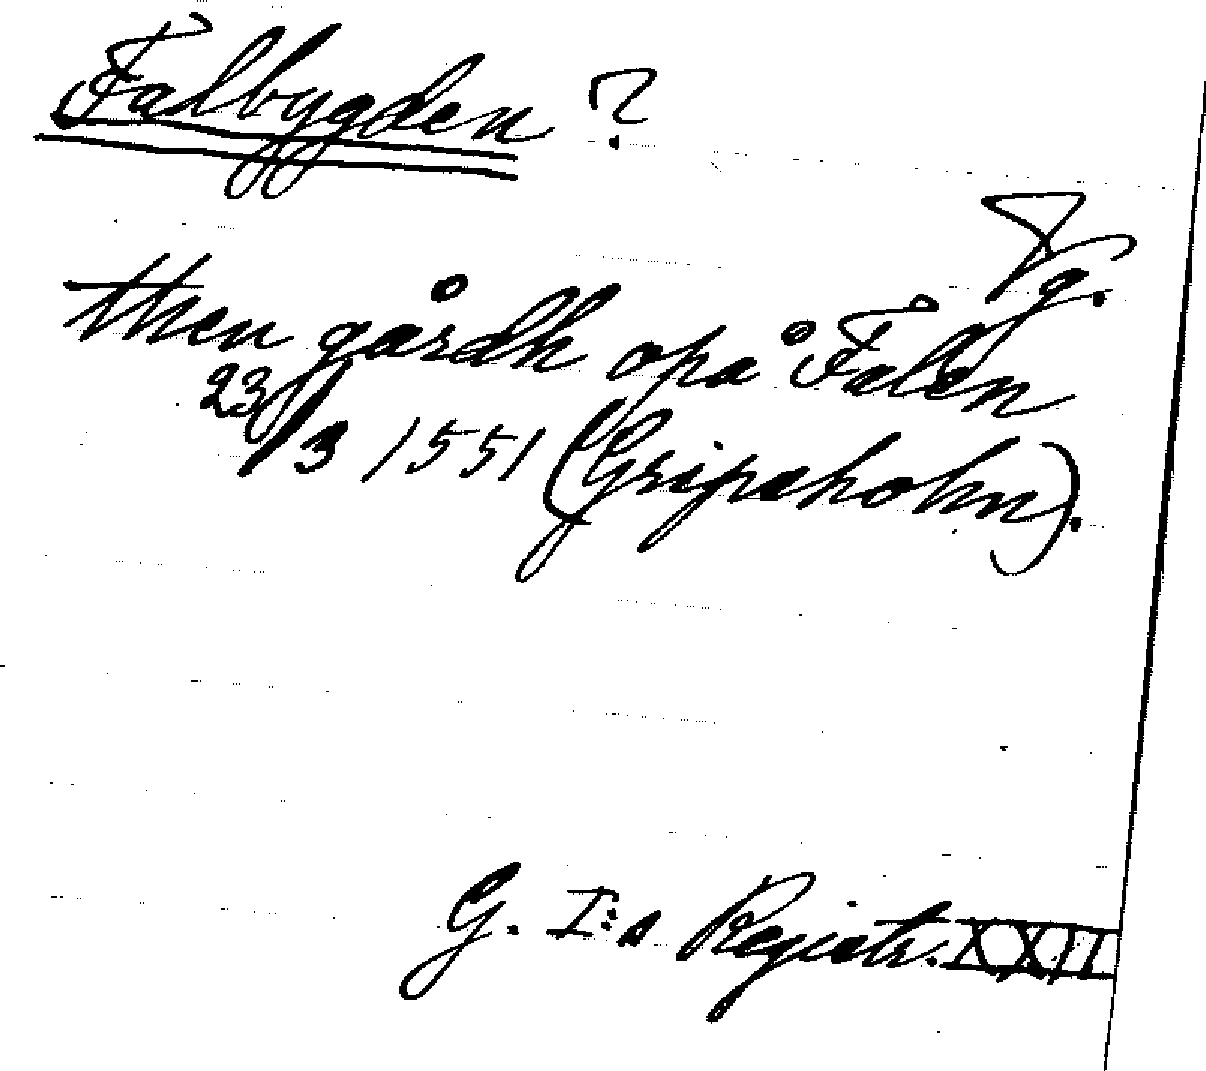 Falbygden ?
Vg.
then gårdh opå Falen
23/3 1551 (Gripsholm).
G. I:s Registr. XXII